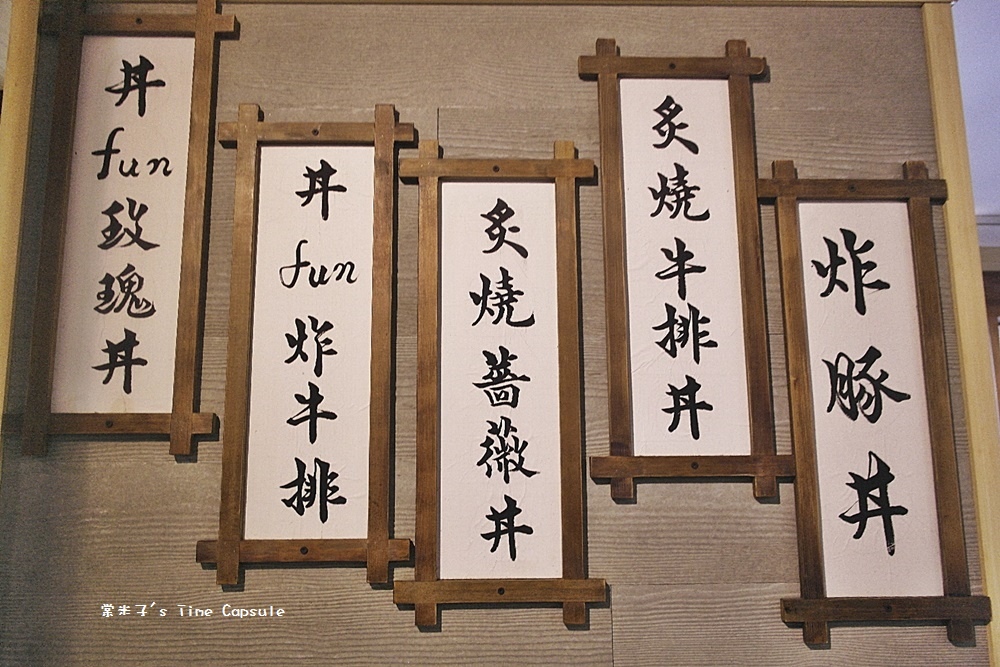 丼fun玫瑰丼
丼fun炸牛排
炙燒薔薇丼
炙燒牛排丼
炸豚丼
棠半子's Time Capsule